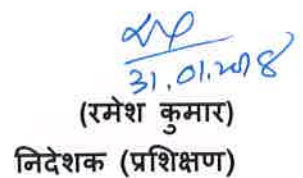 31.01.2018
(रमेश कुमार)
निदेशक (प्रशिक्षण)